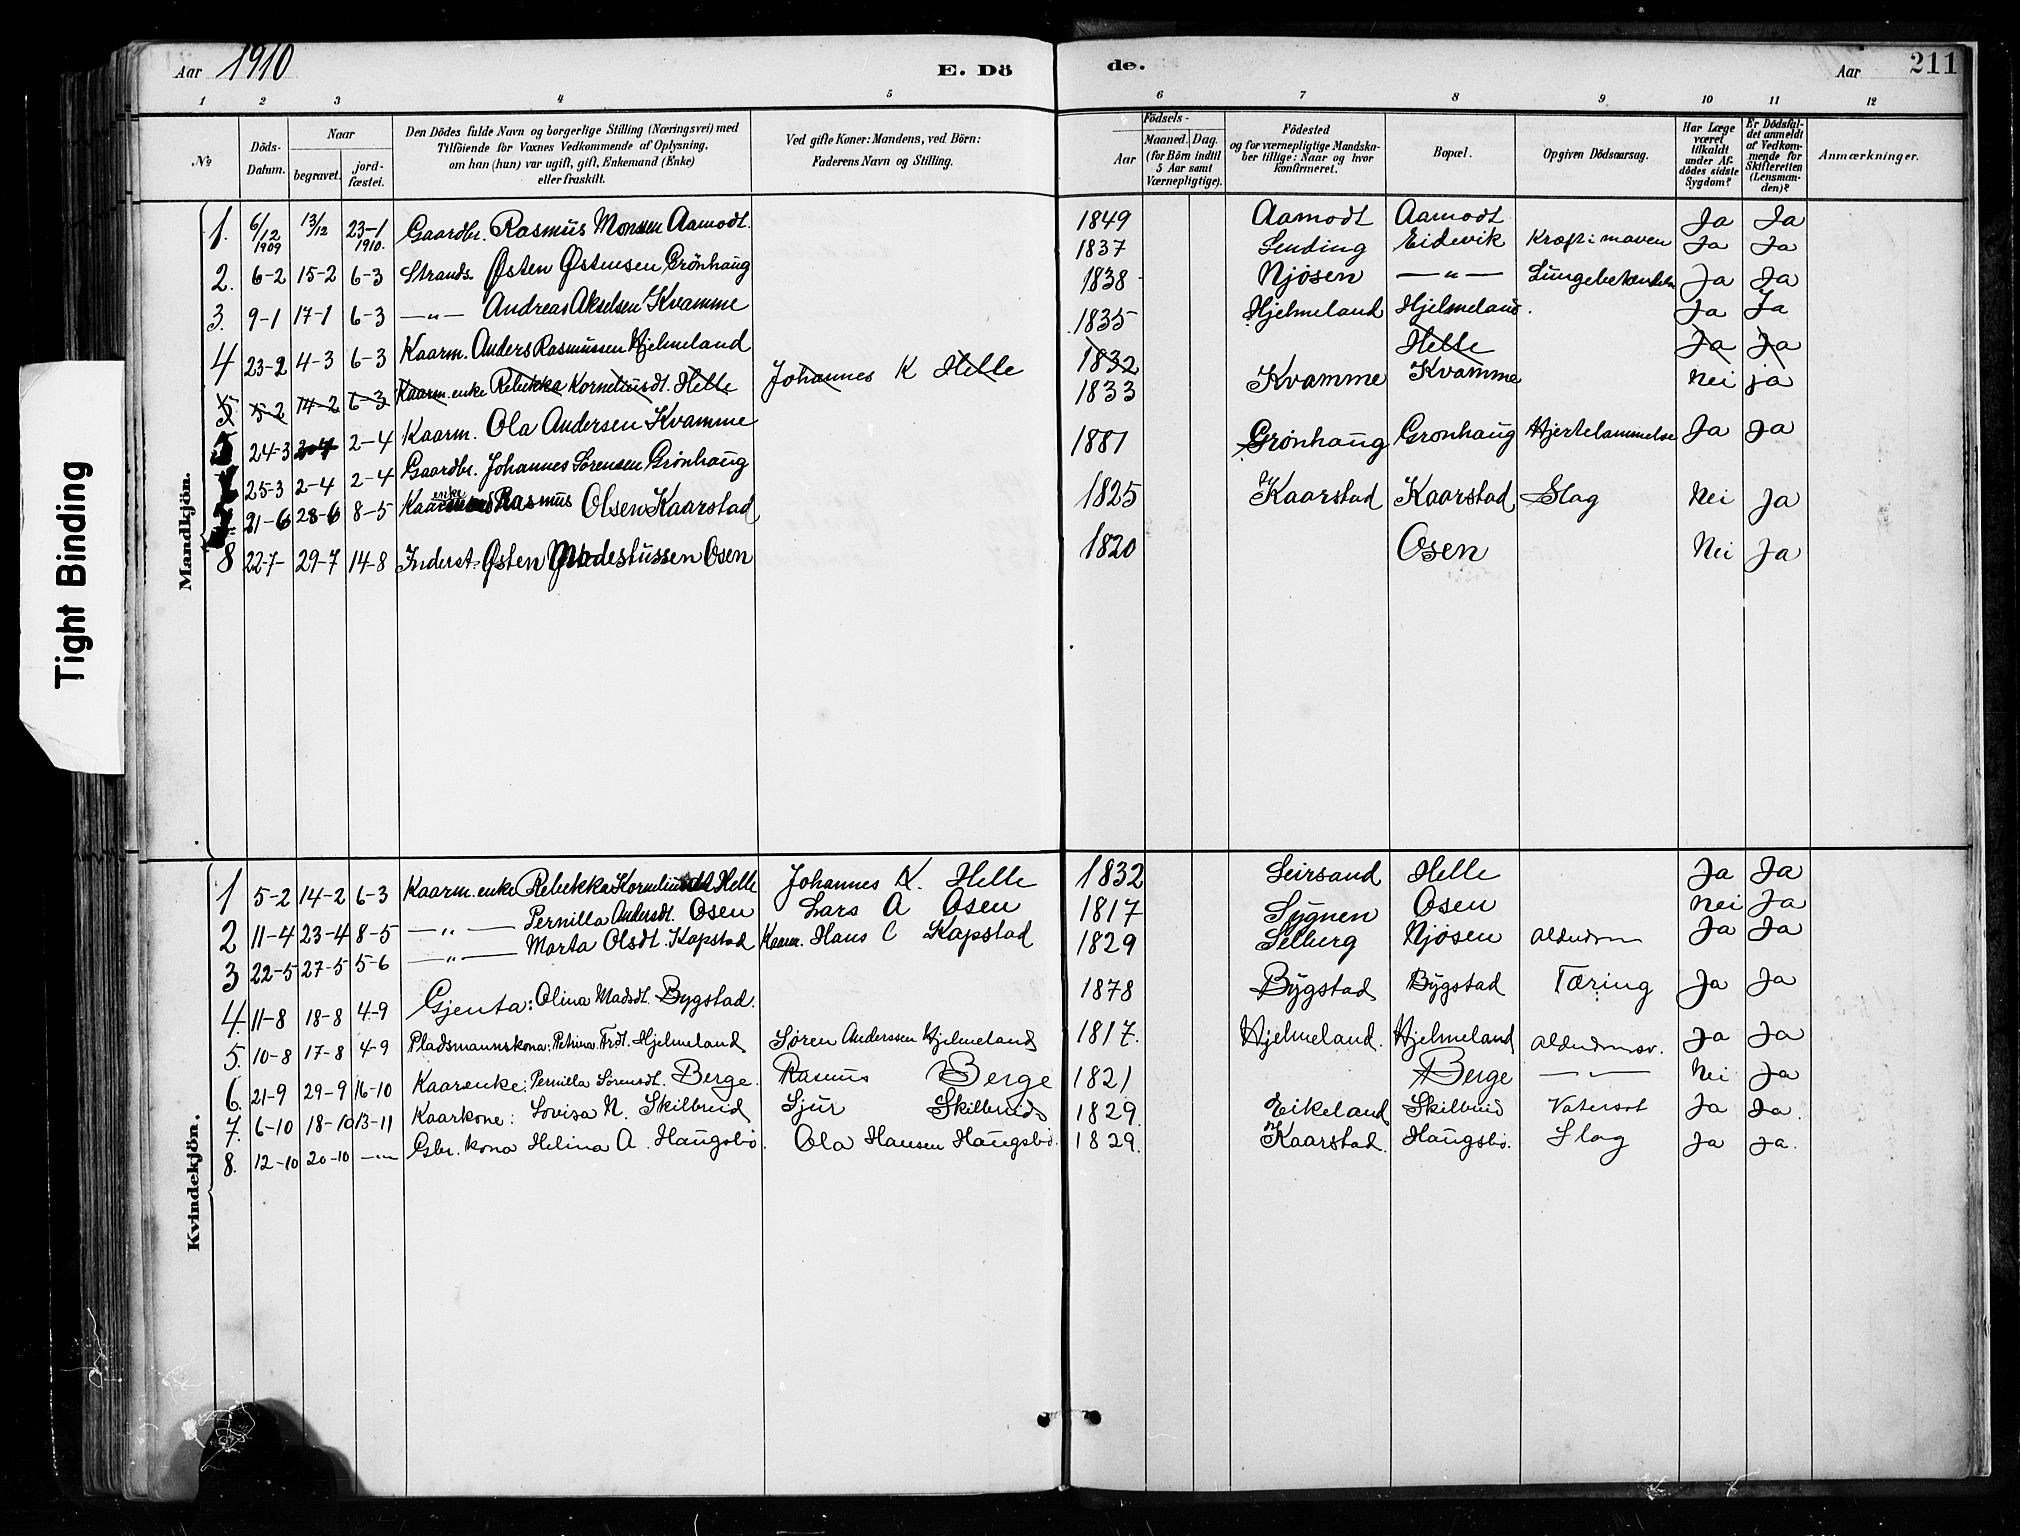 Aar 1910 E. Dö de. Aar 211
1 2 3 4 5 6 7 8 9 10 11 12
No Döds-Datum. Naar begravet. jord-fæstet. Den Dödes fulde Navn og borgerlige Stilling (Næringsvei) med Tilföiende for Voxnes Vedkommende af Oplysning, om han (hun) var ugift, gift, Enkemand (Enke) eller fraskilt. Ved gifte Koner: Mandens, ved Börn: Faderens Navn og Stilling. Födsels- Aar Maaned. Dag. (for Börn indtil 5 Aar samt Værnepligtige). Födested og for værnepligtige Mandskaber tillige: Naar og hvor konfirmeret. Bopæl. Opgiven Dödsaarsag. Har Læge været tilkaldt under Afdödes sidste Sygdom? Er Dödsfaldet anmeldt af Vedkommende for Skifteretten (Lensmanden)? Anmærkninger.
Mandkjön.
1. 6/12 1909 13/12 23-1 1910. Gaardbr. Rasmus Monsen Aamodt. 1849 Aamodt Aamodt Ja Ja
2. 6-2 15-2 6-3 Strands. Østen Østensen Grönhaug 1837 Lending Eidevik Kræft i maven Ja Ja
3. 9-1 17-1 6-3 —"— Andreas Akselsen Kvamme 1838 Njøsen —"— Lungebetændelse Ja Ja
4 23-2 4-3 6-3 Kaarm. Anders Rasmussen Hjelmeland 1835 Hjelmeland Hjelmeland. Ja Ja
5. 5-2 14-2 6-3 Kaarm. enke Rebekka Korneliusdt. Helle Johannes K Helle 1832 Helle Ja Ja
5 24-3 2-4 2-4 Kaarm. Ola Andersen Kvamme 1833 Kvamme Kvamme Nei ja
25-3 2-4 2-4 Gaardbr. Johannes Sørensen Grønhaug 1881 Grönhaug Grønhaug Hjertelammelse Ja Ja
21-6 28-6 8-5 Kaar enke Rasmus Olsen Kaarstad 1825 Kaarstad Kaarstad Slag Nei Ja
8 22-7- 29-7 14-8 Inderst. Østen Modestussen Osen 1820 Osen Nei Ja
Kvindekjön.
1 5-2 14-2 6-3 Kaarm. enke Rebekka Korneliusdt Helle Johannes K. Helle 1832 Leirsand Helle Ja Ja
2 11-4 23-4 8-5 —"— Pernilla Andersdt. Osen Lars A Osen 1817 Sygnen Osen Nei Ja
3 22-5 27-5 5-6 —"— Marta Olsdt. Kapstad Kaarm. Hans C Kapstad 1829 Selberg Njøsen Ja Ja
4. 11-8 18-8 4-9 Gjenta: Olina Madsdt. Bygstad. 1878 Bygstad Bygstad Tæring Ja Ja
5. 10-8 17-8 4-9 Pladsmannskona: Petrina Hjelmeland Søren Anderssen Hjelmeland 1817. Hjelmeland. Hjelmeland Ja Ja
6. 21-9 29-9 16-10 Kaarenke: Pernilla Sørensdt. Berge. Rasmus Berge 1821 Berge —"— Nei Ja
7. 6-10 18-10 13-11 Kaarkone: Lovisa N. Skilbreid Sjur Skilbreid 1829. Eikeland Skilbreid Vatersot Ja Ja.
8. 12-10 20-10 —"— Gbr. kona Helina A. Haugsbö. Ola Hansen Haugsbö. 1829. Kaarstad. Haugsbö. Slag Ja ja.
Tight Binding